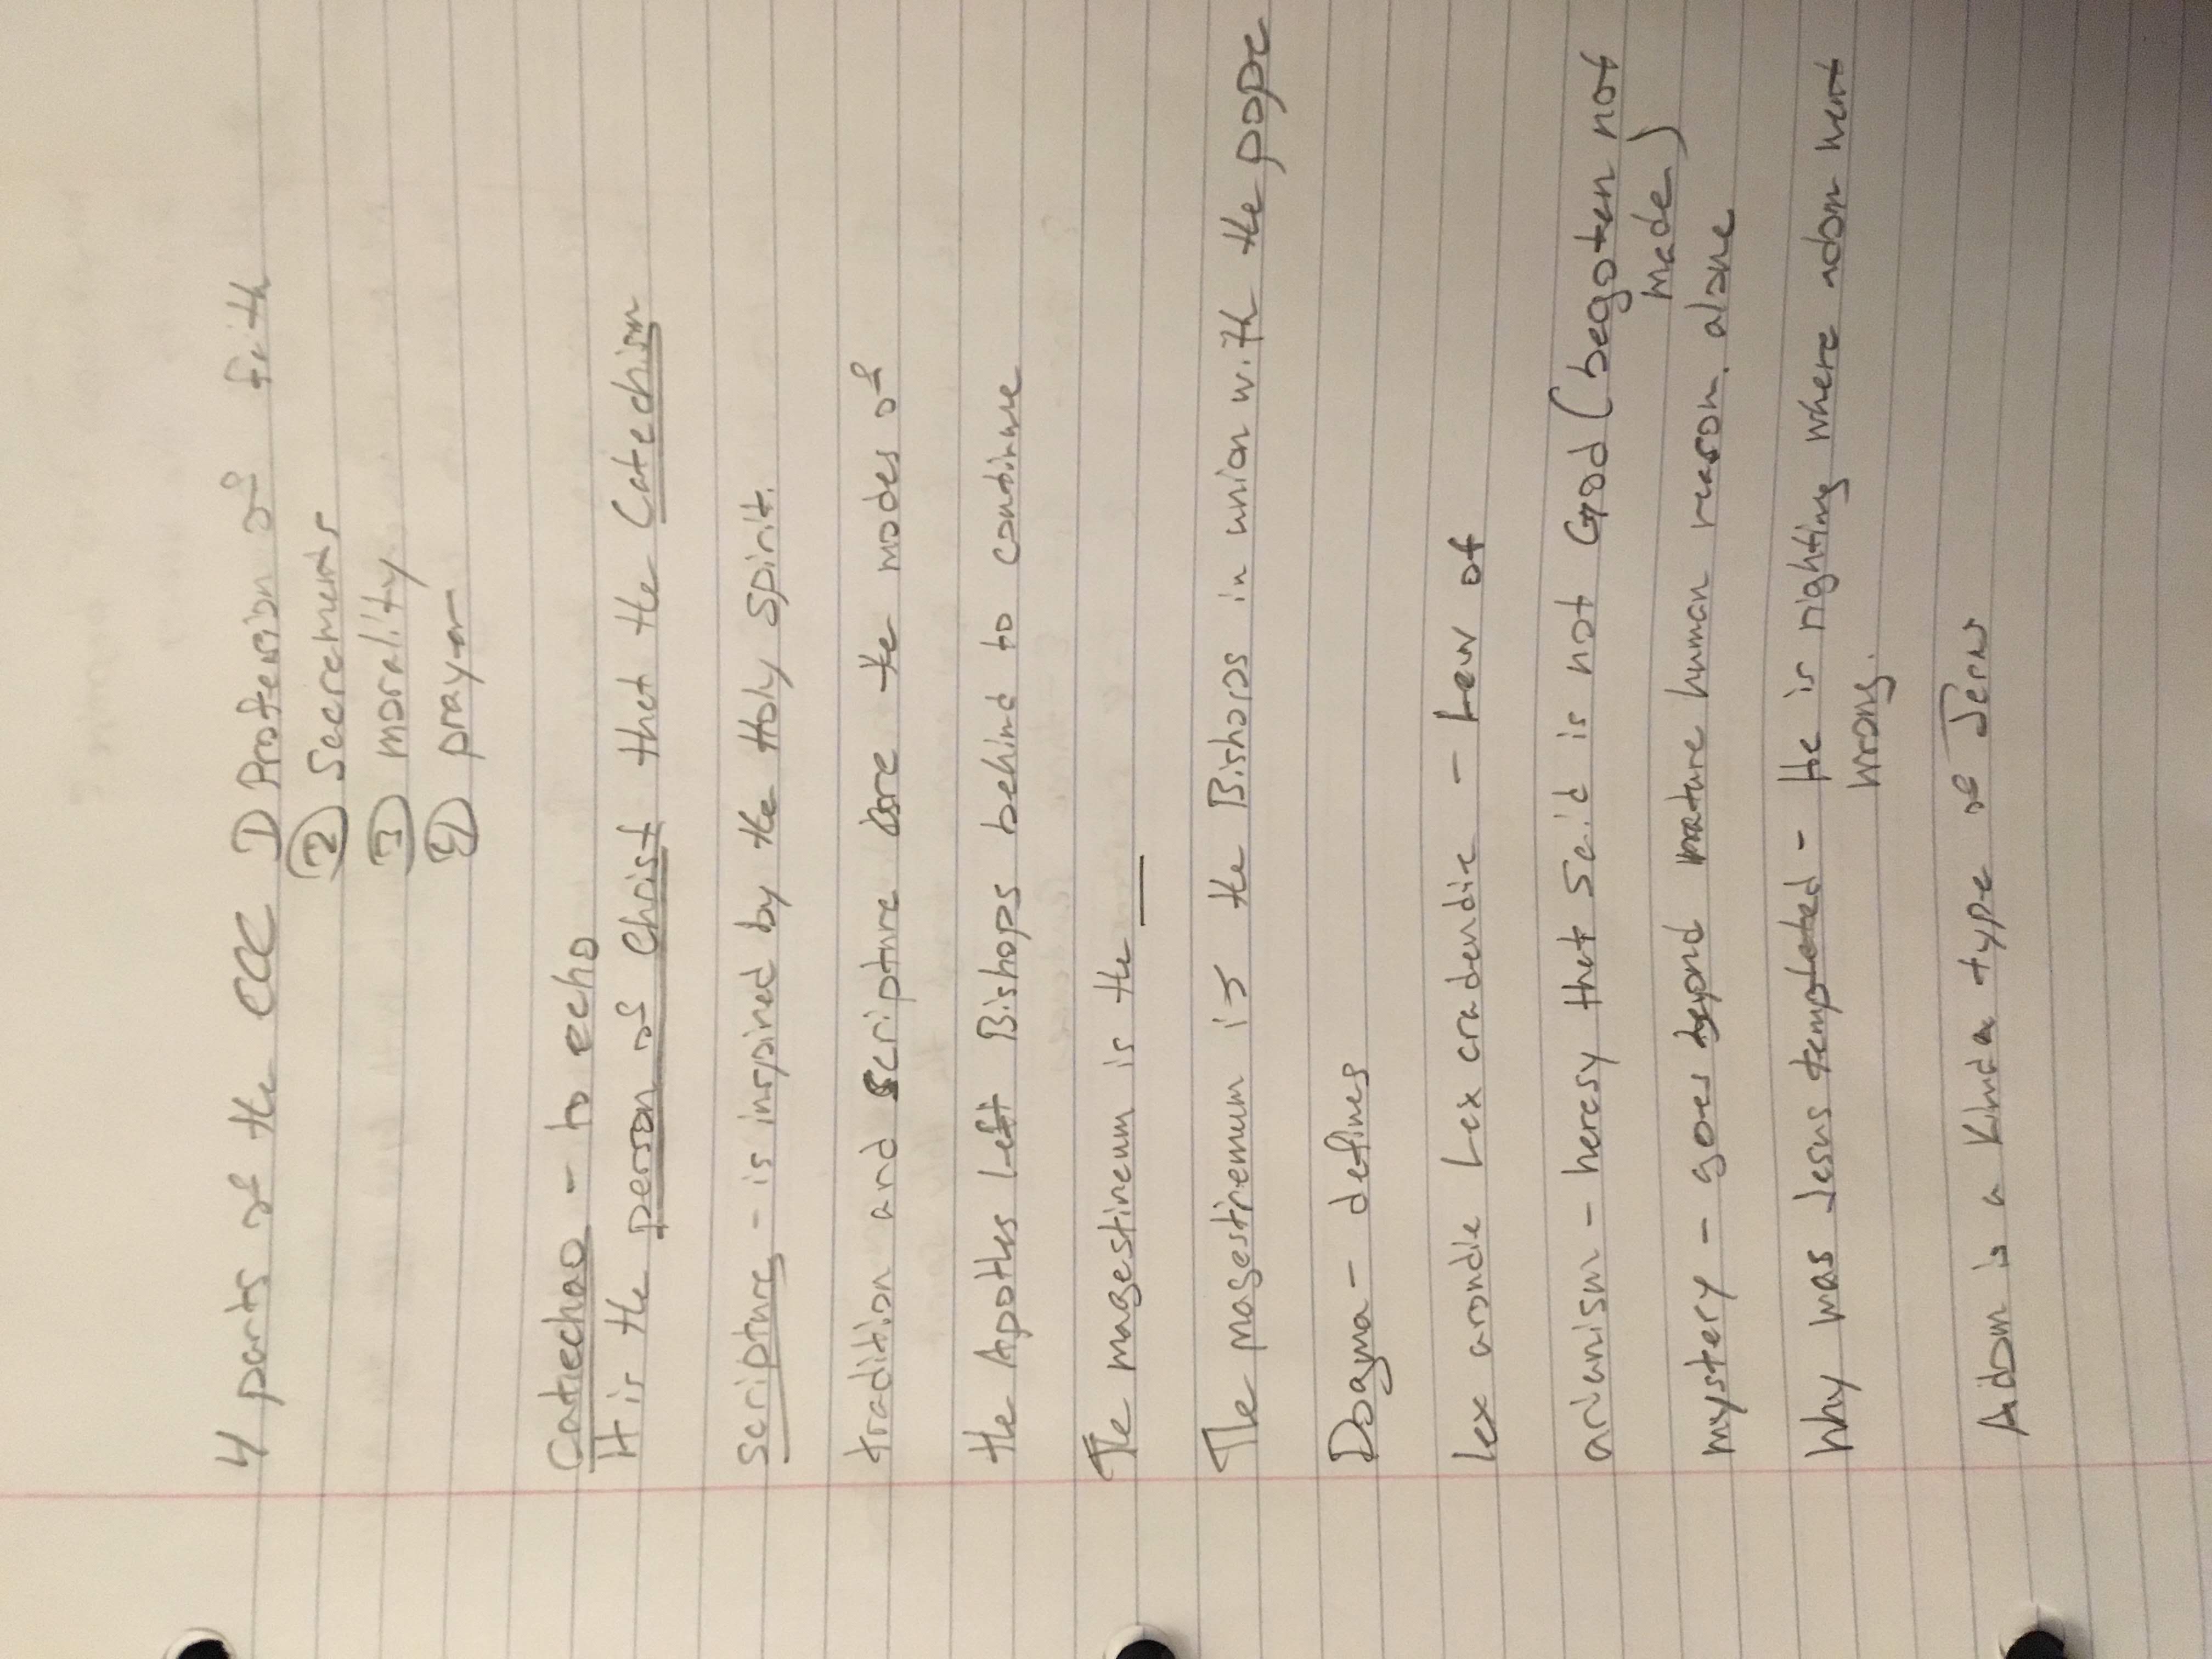 4 parts of the CCC ① Profession of fith
② Sacraments
③ morality
④ prayer
Catiechao - to echo
It is the person of Christ that the Catechism
Scripture - is inspired by the Holy Spirit.
tradition and Scripture are the modes of
the Apotles Left Bishops behind to continue
The magestireum is the __
The magestireum is the Bishops in union with the pope
Dogma - defines
Lex arondie Lex cradendie - Law of
arianism - heresy that said is not God (begoten not
made)
mystery - goes beyond mature human reason alone
Why was Jesus tempteted - He is righting where adam went
wrong.
Adam is a kind a type of Jesus